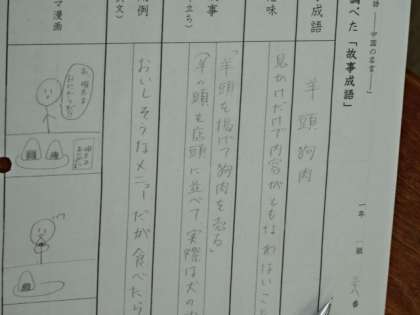 中国の名言
調べた「故事成語」
一年
一組
番
成語
羊頭狗肉
意味
見かけだけで内容がともなわないこと
故事
「羊頭を掲げて狗肉を売る」
(羊の頭を店頭に並べて実際は犬の
用例
おいしそうなメニューだが食べたら
マ漫画